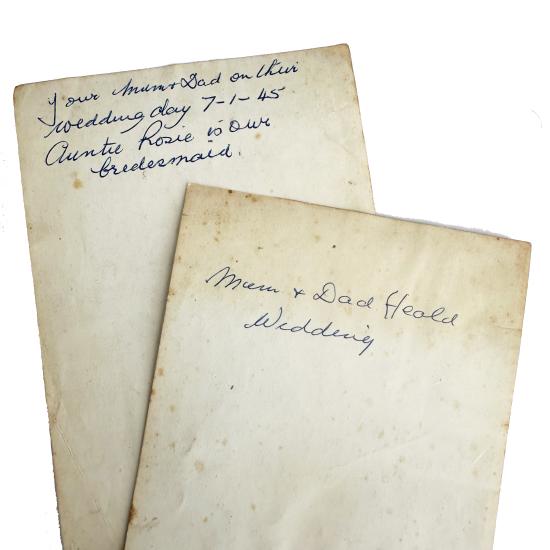 Your Mum & Dad on their
wedding day 7-1-45
Auntie Rosie is our
bredesmaid.
Mum & Dad Heald
Wedding